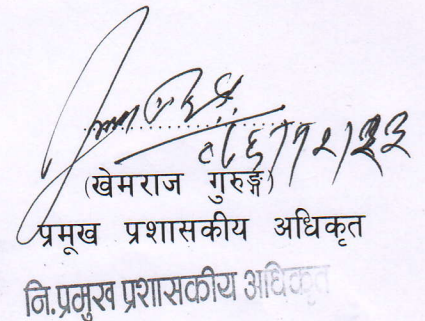 (खेमराज गुरुङ्ग)
प्रमूख प्रशासकीय अधिकृत
नि.प्रमुख प्रशासकीय अधिकृत